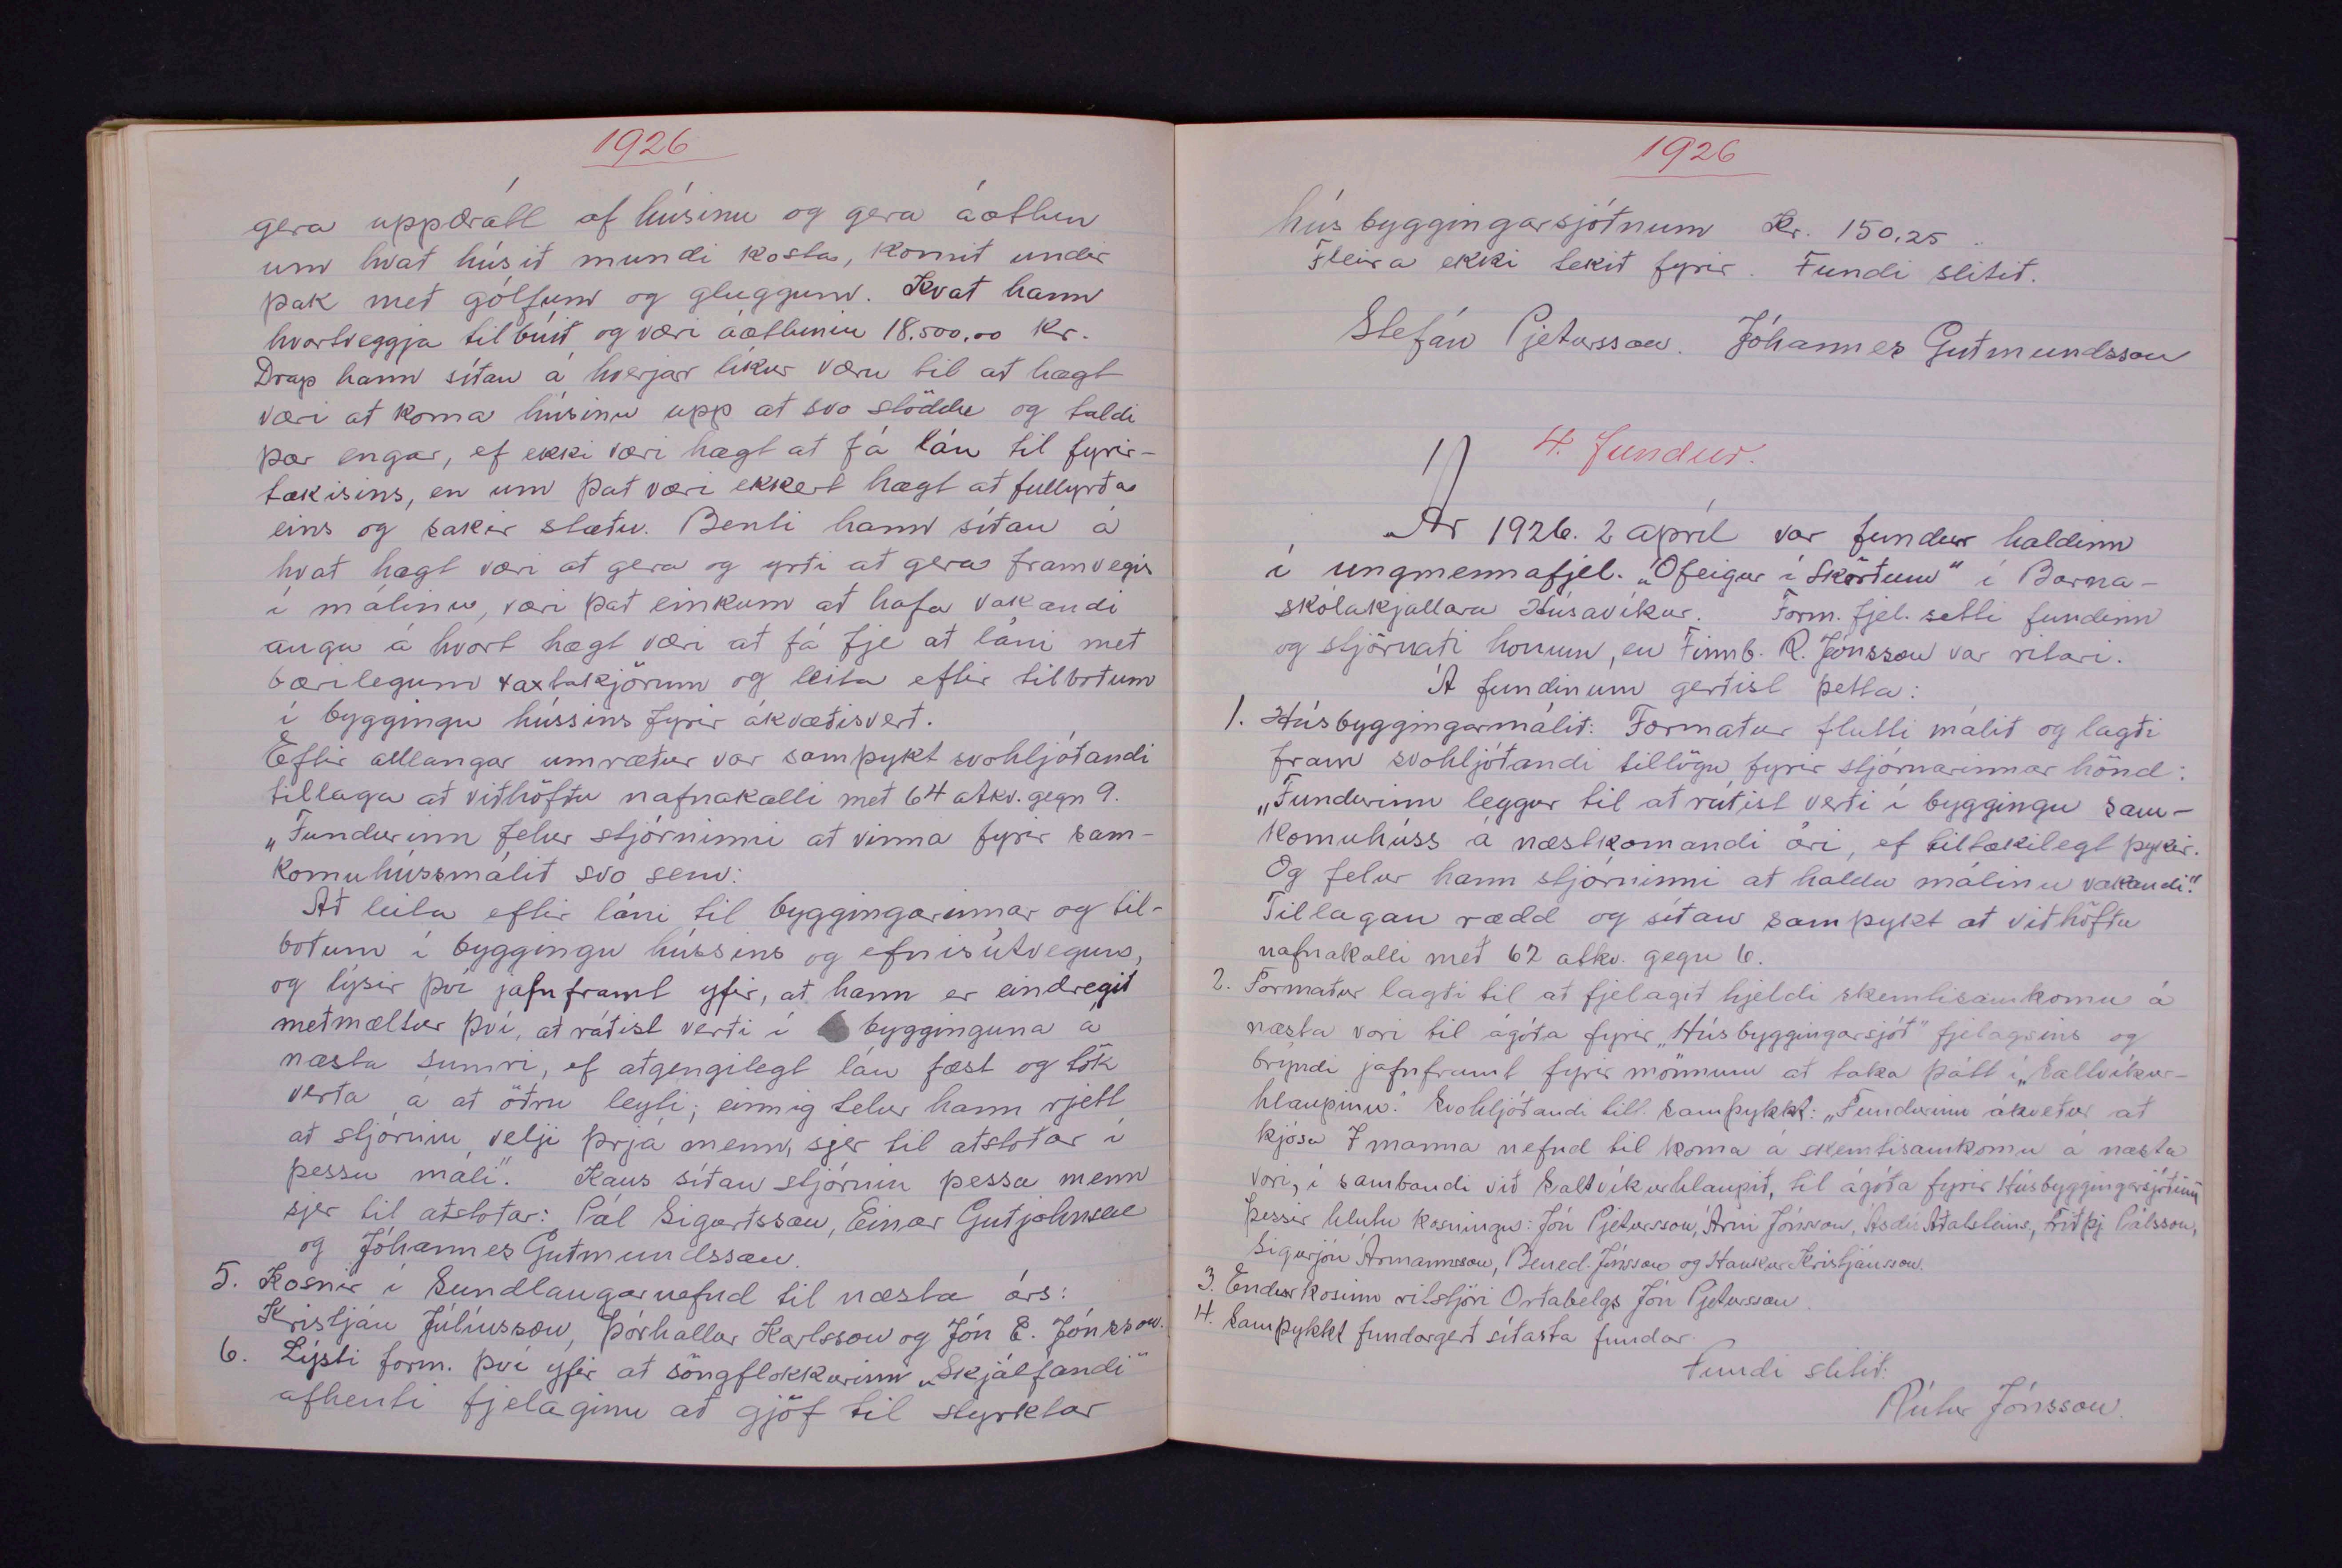 1926
gera uppdrátt af húsinu og gera áætlun
um hvað húsið mundi kosta, komið undir
þak með gólfum og gluggum. Kvað hann
hvortveggja tilbúið og væri áætlunin 18.500.00 kr.
Drap hann síðan á hverjar líkur væru til að hægt
væri að koma húsinu upp að svo stöddu og taldi
þær engar, ef ekki væri hægt að fá lán til fyrir-
tækisins, en um það væri ekkert hægt að fullyrða
eins og sakir stæðu. Benti hann síðan á
hvað hægt væri að gera og yrði að gera framvegis
í málinu, væri það einkum að hafa vakandi
auga á hvort hægt væri að fá fje að láni með
bærilegum vaxtakjörum og leita eftir tilboðum
í byggingu hússins fyrir ákvæðisverð.
Eftir allangar umræður var samþykt svohljóðandi
tillaga að viðhöfðu nafnakalli með 64 atkv. gegn 9.
„Fundurinn felur stjórninni að vinna fyrir sam-
komuhússmálið svo sem:
Að leita eftir láni til byggingarinnar og til-
boðum í byggingu hússins og efnisútvegun,
og lýsir því jafnframt yfir, að hann er eindregið
meðmæltur því, að ráðist verði í bygginguna á
næsta sumri, ef aðgengilegt lán fæst og tök
verða á að öðru leyti; einnig telur hann rjett
að stjórnin velji þrjá menn, sjer til aðstoðar í
þessu máli". Kaus síðan stjórnin þessa menn
sjer til aðstoðar: Pál Sigurðsson, Einar Guðjohnsen
og Jóhannes Guðmundsson.
5. Kosnir í Sundlaugarnefnd til næsta árs:
Kristján Júlíusson, Þórhallur Karlsson og Jón E. Jónsson.
6. Lýsti form. því yfir að söngflokkurinn „Skjálfandi"
afhenti fjelaginu að gjöf til styrktar
1926
húsbyggingarsjóðnum Kr. 150.25.
Fleira ekki tekið fyrir. Fundi slitið.
Stefán Pjetursson. Jóhannes Guðmundsson
4. fundur.
Ár 1926. 2 apríl var fundur haldinn
í ungmennafjel. „Ófeigur í Skörðum" í Barna-
skólakjallara Húsavíkur. Form. fjel. setti fundinn
og stjórnaði honum, en Finnb. R. Jónsson var ritari.
Á fundinum gerðist þetta:
1. Húsbyggingarmálið: Formaður flutti málið og lagði
fram svohljóðandi tillögu fyrir stjórnarinnar hönd:
„Fundurinn leggur til að ráðist verði í byggingu sam-
komuhúss á næstkomandi ári, ef tiltækilegt þykir.
Og felur hann stjórninni að halda málinu vakandi."
Tillagan rædd og síðan samþykt að viðhöfðu
nafnakalli með 62 atkv. gegn 6.
2. Formaður lagði til að fjelagið hjeldi skemtisamkomu á
næsta vori til ágóða fyrir „Húsbyggingarsjóð" fjelagsins og
brýndi jafnframt fyrir mönnum að taka þátt í „Saltvíkur-
hlaupinu." Svohljóðandi till. samþykkt: „Fundurinn ákveður að
kjósa 7 manna nefnd til koma á skemtisamkomu á næsta
vori, í sambandi við Saltvíkurhlaupið, til ágóða fyrir Húsbyggingarsjóðinn
Þessir hlutu kosningu: Jón Pjetursson, Árni Jónsson, Ásdís Aðalsteins, Friðþj Pálsson,
Sigurjón Ármannsson, Bened. Jónsson og Haukur Kristjánsson.
3. Endurkosinn ritstjóri Orðabelgs Jón Pjetursson.
4. Samþykkt fundargerð síðasta fundar.
Fundi slitið.
Rútur Jónsson.